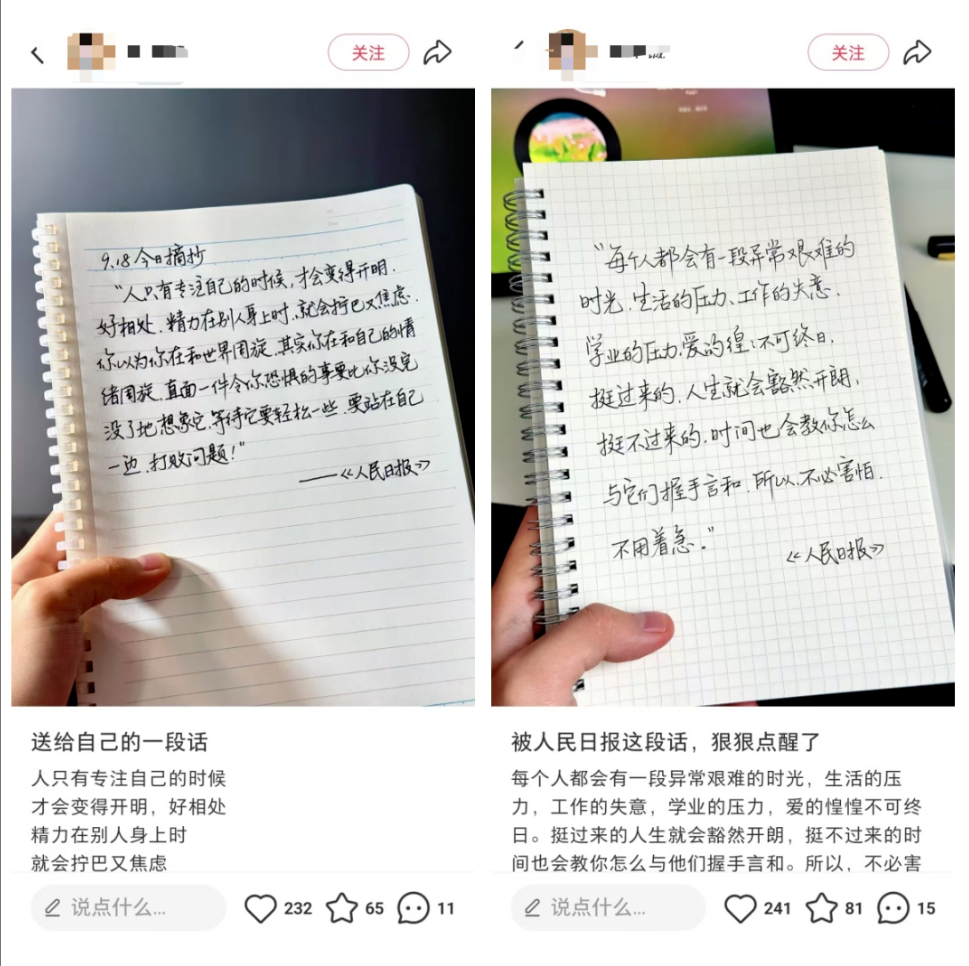 关注
9.18 今日摘抄
“人只有专注自己的时候，才会变得开明，
好相处，精力在别人身上时，就会拧巴又焦虑，
你以为你在和世界周旋，其实你在和自己的情
绪周旋，直面一件令你恐惧的事要比你没完
没了地想象它，等待它要轻松一些，要站在自己
一边，打败问题！”
——《人民日报》
送给自己的一段话
人只有专注自己的时候
才会变得开明，好相处
精力在别人身上时
就会拧巴又焦虑
说点什么...
232
65
11
关注
“每个人都会有一段异常艰难的
时光，生活的压力、工作的失意，
学业的压力，爱的惶惶不可终日，
挺过来的，人生就会豁然开朗，
挺不过来的，时间也会教你怎么
与它们握手言和，所以，不必害怕，
不用着急。”
《人民日报》
被人民日报这段话，狠狠点醒了
每个人都会有一段异常艰难的时光，生活的压
力，工作的失意，学业的压力，爱的惶惶不可终
日。挺过来的人生就会豁然开朗，挺不过来的时
间也会教你怎么与他们握手言和。所以，不必害
说点什么...
241
81
15